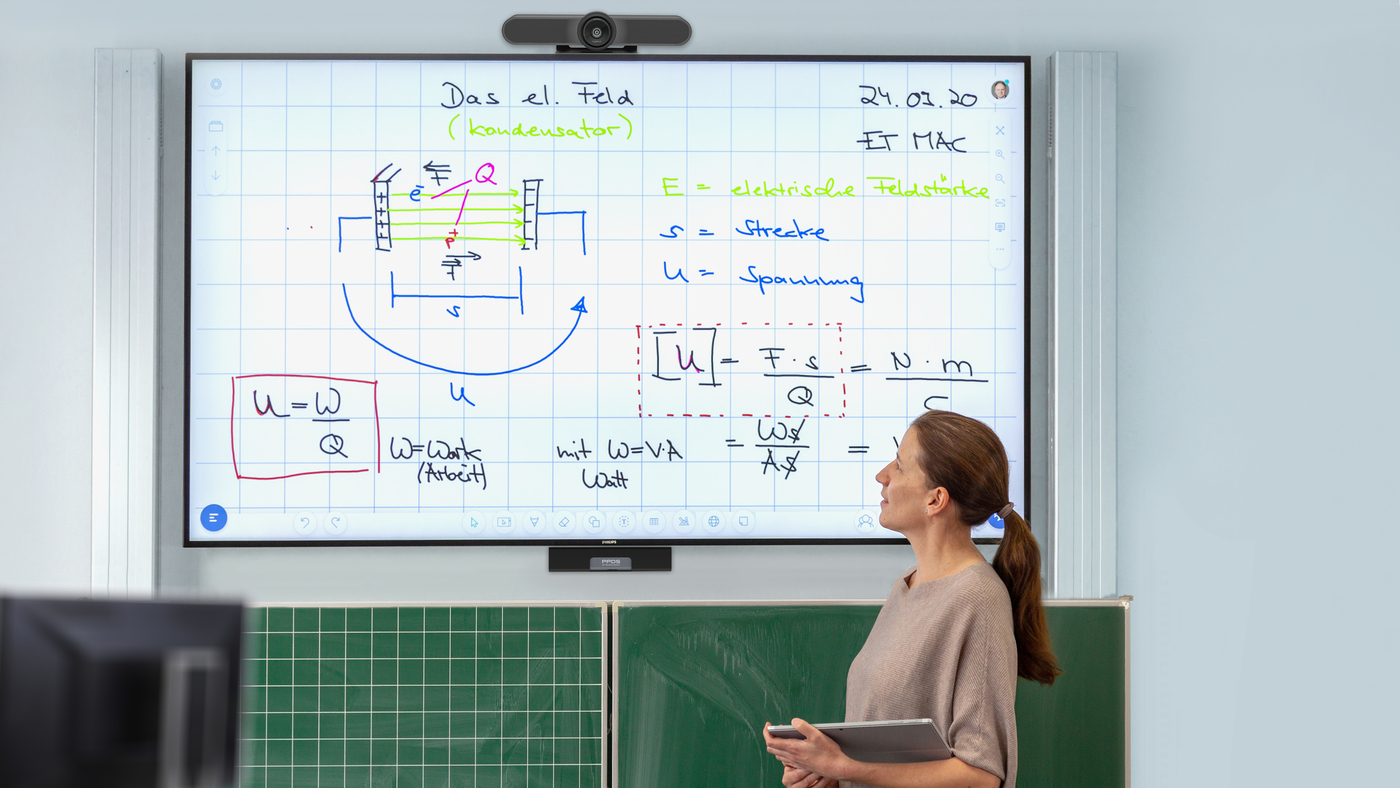 Das el. Feld
(Kondensator)
24.09.20
ET MAC
F
Q
e-
+
+
+
+
-
-
-
-
p+
F
s
U
E = elektrische Feldstärke
s = Strecke
U = Spannung
[U] = F · s / Q = N · m / C
U = W / Q
W = Work
(Arbeit)
mit W = V·A
Watt
= Ws / As =
PHILIPS
PPDS